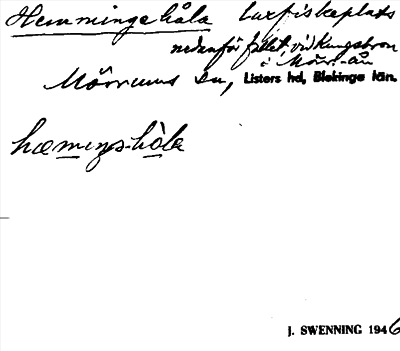 Hemmingahåla laxfiskeplats
nedanför fallet vid Kungsbron
i Mörr.-ån
Mörrums sn, Listers hd, Blekinge län.
hæmiŋs-hòla
J. SWENNING 1946